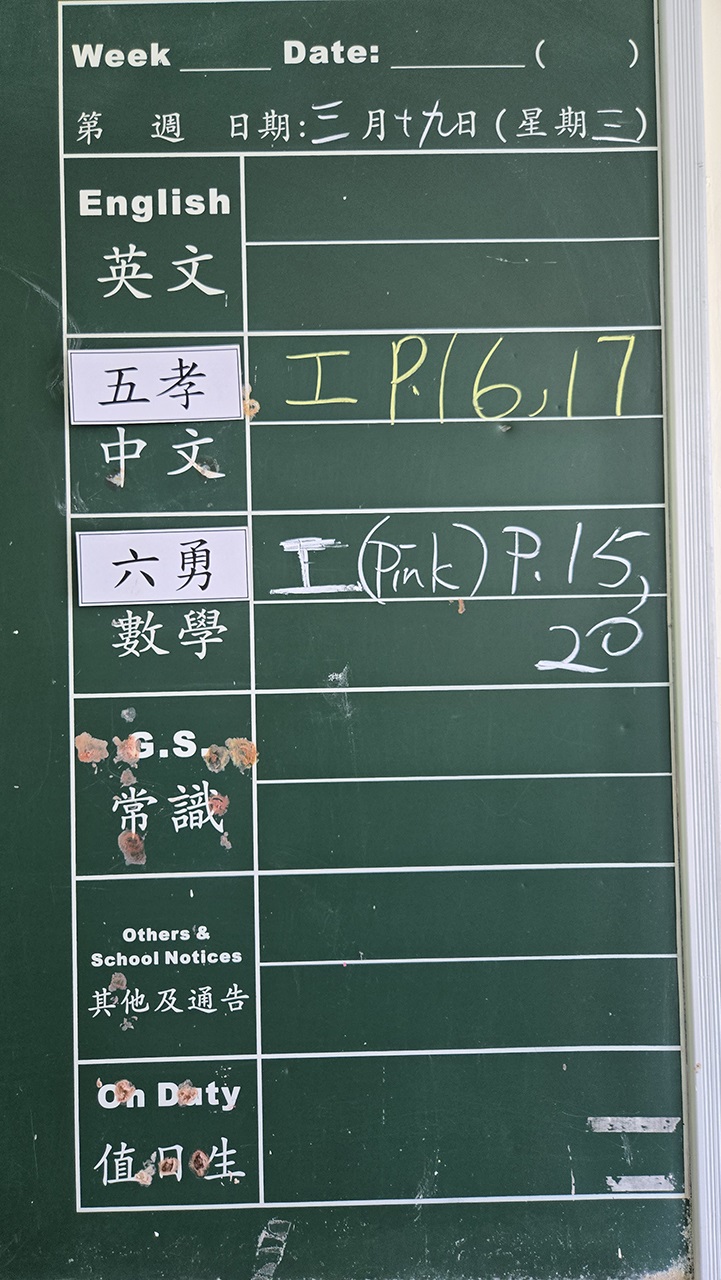 Week ____ Date: ______ ( )
第 週 日期:三月十九日(星期三)
English
英文
五孝 工 P.16,17
中文
六勇 工(Pink) P.15,
數學 20
G.S.
常識
Others &
School Notices
其他及通告
On Duty
值日生